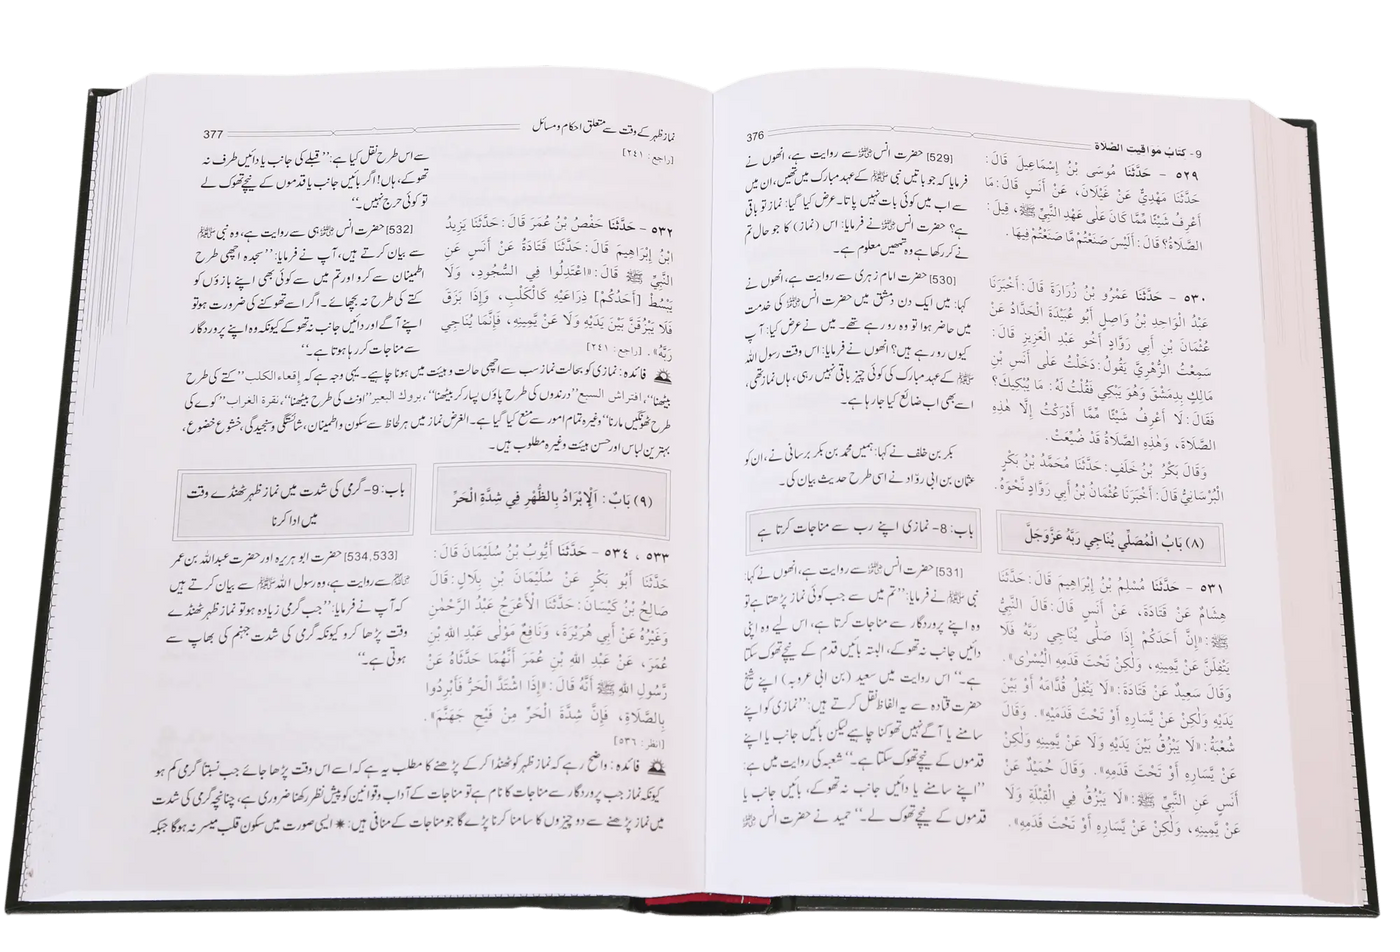 9- کتاب مواقیت الصلاة
376
٥٢٩ - حَدَّثَنَا مُوسَى بْنُ إِسْمَاعِيلَ قَالَ:
حَدَّثَنَا مَهْدِيٌّ عَنْ غَيْلَانَ، عَنْ أَنَسٍ قَالَ: مَا
أَعْرِفُ شَيْئًا مِّمَّا كَانَ عَلَى عَهْدِ النَّبِيِّ ﷺ، قِيلَ:
الصَّلَاةُ؟ قَالَ: أَلَيْسَ صَنَعْتُمْ مَّا صَنَعْتُمْ فِيهَا.
٥٣٠ - حَدَّثَنَا عَمْرُو بْنُ زُرَارَةَ قَالَ: أَخْبَرَنَا
عَبْدُ الْوَاحِدِ بْنُ وَاصِلٍ أَبُو عُبَيْدَةَ الْحَدَّادُ عَنْ
عُثْمَانَ بْنِ أَبِي رَوَّادٍ أَخُو عَبْدِ الْعَزِيزِ قَالَ:
سَمِعْتُ الزُّهْرِيَّ يَقُولُ: دَخَلْتُ عَلَى أَنَسِ بْنِ
مَالِكٍ بِدِمَشْقَ وَهُوَ يَبْكِي فَقُلْتُ لَهُ: مَا يُبْكِيكَ؟
فَقَالَ: لَا أَعْرِفُ شَيْئًا مِّمَّا أَدْرَكْتُ إِلَّا هٰذِهِ
الصَّلَاةَ، وَهٰذِهِ الصَّلَاةُ قَدْ ضُيِّعَتْ.
وَقَالَ بَكْرُ بْنُ خَلَفٍ: حَدَّثَنَا مُحَمَّدُ بْنُ بَكْرٍ
الْبُرْسَانِيُّ قَالَ: أَخْبَرَنَا عُثْمَانُ بْنُ أَبِي رَوَّادٍ نَحْوَهُ.
(٨) بَابُ الْمُصَلِّي يُنَاجِي رَبَّهُ عَزَّوَجَلَّ
٥٣١ - حَدَّثَنَا مُسْلِمُ بْنُ إِبْرَاهِيمَ قَالَ: حَدَّثَنَا
هِشَامٌ عَنْ قَتَادَةَ، عَنْ أَنَسٍ قَالَ: قَالَ النَّبِيُّ
ﷺ: «إِنَّ أَحَدَكُمْ إِذَا صَلَّى يُنَاجِي رَبَّهُ فَلَا
يَتْفِلَنَّ عَنْ يَّمِينِهِ، وَلٰكِنْ تَحْتَ قَدَمِهِ الْيُسْرٰى».
وَقَالَ سَعِيدٌ عَنْ قَتَادَةَ: «لَا يَتْفِلُ قُدَّامَهُ أَوْ بَيْنَ
يَدَيْهِ وَلٰكِنْ عَنْ يَّسَارِهِ أَوْ تَحْتَ قَدَمَيْهِ». وَقَالَ
شُعْبَةُ: «لَا يَبْزُقُ بَيْنَ يَدَيْهِ وَلَا عَنْ يَّمِينِهِ وَلٰكِنْ
عَنْ يَّسَارِهِ أَوْ تَحْتَ قَدَمِهِ». وَقَالَ حُمَيْدٌ عَنْ
أَنَسٍ عَنِ النَّبِيِّ ﷺ: «لَا يَبْزُقْ فِي الْقِبْلَةِ وَلَا
عَنْ يَّمِينِهِ، وَلٰكِنْ عَنْ يَّسَارِهِ أَوْ تَحْتَ قَدَمِهِ».
[529] حضرت انس ؓ سے روایت ہے، انھوں نے
فرمایا کہ جو باتیں نبی ﷺ کے عہد مبارک میں تھیں، ان میں
سے اب میں کوئی بات نہیں پاتا۔ عرض کیا گیا: نماز تو باقی
ہے؟ حضرت انس ؓ نے فرمایا: اس (نماز) کا جو حال تم
نے کر رکھا ہے وہ تمھیں معلوم ہے۔
[530] حضرت امام زہری سے روایت ہے، انھوں نے
کہا: میں ایک دن دمشق میں حضرت انس ؓ کی خدمت
میں حاضر ہوا تو وہ رو رہے تھے۔ میں نے عرض کیا: آپ
کیوں رو رہے ہیں؟ انھوں نے فرمایا: اس وقت رسول اللہ
ﷺ کے عہد مبارک کی کوئی چیز باقی نہیں رہی، ہاں نماز تھی،
اسے بھی اب ضائع کیا جا رہا ہے۔
بکر بن خلف نے کہا: ہمیں محمد بن بکر برسانی نے، ان کو
عثمان بن ابی روّاد نے اسی طرح حدیث بیان کی۔
باب: 8- نمازی اپنے رب سے مناجات کرتا ہے
[531] حضرت انس ؓ سے روایت ہے، انھوں نے کہا:
نبی ﷺ نے فرمایا: ’’تم میں سے جب کوئی نماز پڑھتا ہے تو
وہ اپنے پروردگار سے مناجات کرتا ہے، اس لیے وہ اپنی
دائیں جانب نہ تھوکے، البتہ بائیں قدم کے نیچے تھوک سکتا
ہے۔‘‘ اس روایت میں سعید (بن ابی عروبہ) اپنے شیخ
حضرت قتادہ سے یہ الفاظ نقل کرتے ہیں: ’’نمازی کو اپنے
سامنے یا آگے نہیں تھوکنا چاہیے لیکن بائیں جانب یا اپنے
قدموں کے نیچے تھوک سکتا ہے۔‘‘ شعبہ کی روایت میں ہے:
’’اپنے سامنے یا دائیں جانب نہ تھوکے، بائیں جانب یا
قدموں کے نیچے تھوک لے۔‘‘ حمید نے حضرت انس ؓ
نماز ظہر کے وقت سے متعلق احکام و مسائل
377
[راجع: ٢٤١]
سے اس طرح نقل کیا ہے: ’’قبلے کی جانب یا دائیں طرف نہ
تھوکے، ہاں! اگر بائیں جانب یا قدموں کے نیچے تھوک لے
تو کوئی حرج نہیں۔‘‘
٥٣٢ - حَدَّثَنَا حَفْصُ بْنُ عُمَرَ قَالَ: حَدَّثَنَا يَزِيدُ
ابْنُ إِبْرَاهِيمَ قَالَ: حَدَّثَنَا قَتَادَةُ عَنْ أَنَسٍ عَنِ
النَّبِيِّ ﷺ قَالَ: «اعْتَدِلُوا فِي السُّجُودِ، وَلَا
يَبْسُطْ [أَحَدُكُمْ] ذِرَاعَيْهِ كَالْكَلْبِ، وَإِذَا بَزَقَ
فَلَا يَبْزُقَنَّ بَيْنَ يَدَيْهِ وَلَا عَنْ يَّمِينِهِ، فَإِنَّمَا يُنَاجِي
رَبَّهُ». [راجع: ٢٤١]
[532] حضرت انس ؓ ہی سے روایت ہے، وہ نبی ﷺ
سے بیان کرتے ہیں، آپ نے فرمایا: ’’سجدہ اچھی طرح
اطمینان سے کرو اور تم میں سے کوئی بھی اپنے بازؤں کو
کتے کی طرح نہ بچھائے۔ اگر اسے تھوکنے کی ضرورت ہو تو
اپنے آگے اور دائیں جانب نہ تھوکے کیونکہ وہ اپنے پروردگار
سے مناجات کر رہا ہوتا ہے۔‘‘
فائدہ: نمازی کو بحالت نماز سب سے اچھی حالت و ہیئت میں ہونا چاہیے۔ یہی وجہ ہے کہ إقعاء الكلب ’’کتے کی طرح
بیٹھنا‘‘، افتراش السبع ’’درندوں کی طرح پاؤں پسار کر بیٹھنا‘‘، بروك البعير ’’اونٹ کی طرح بیٹھنا‘‘، نقرة الغراب ’’کوے کی
طرح ٹھونگیں مارنا‘‘ وغیرہ تمام امور سے منع کیا گیا ہے۔ الغرض نماز میں ہر لحاظ سے سکون و اطمینان، شائستگی و سنجیدگی، خشوع خضوع،
بہترین لباس اور حسن ہیئت وغیرہ مطلوب ہیں۔
(٩) بَابٌ: اَلْإِبْرَادُ بِالظُّهْرِ فِي شِدَّةِ الْحَرِّ
باب: 9- گرمی کی شدت میں نماز ظہر ٹھنڈے وقت
میں ادا کرنا
٥٣٣ ، ٥٣٤ - حَدَّثَنَا أَيُّوبُ بْنُ سُلَيْمَانَ قَالَ:
حَدَّثَنَا أَبُو بَكْرٍ عَنْ سُلَيْمَانَ بْنِ بِلَالٍ: قَالَ
صَالِحُ بْنُ كَيْسَانَ: حَدَّثَنَا الْأَعْرَجُ عَبْدُ الرَّحْمٰنِ
وَغَيْرُهُ عَنْ أَبِي هُرَيْرَةَ، وَنَافِعٌ مَوْلٰى عَبْدِ اللهِ بْنِ
عُمَرَ، عَنْ عَبْدِ اللهِ بْنِ عُمَرَ أَنَّهُمَا حَدَّثَاهُ عَنْ
رَّسُولِ اللهِ ﷺ أَنَّهُ قَالَ: «إِذَا اشْتَدَّ الْحَرُّ فَأَبْرِدُوا
بِالصَّلَاةِ، فَإِنَّ شِدَّةَ الْحَرِّ مِنْ فَيْحِ جَهَنَّمَ».
[انظر: ٥٣٦]
[534,533] حضرت ابو ہریرہ اور حضرت عبداللہ بن عمر
ؓ سے روایت ہے، وہ رسول اللہ ﷺ سے بیان کرتے ہیں
کہ آپ نے فرمایا: ’’جب گرمی زیادہ ہو تو نماز ظہر ٹھنڈے
وقت پڑھا کرو کیونکہ گرمی کی شدت جہنم کی بھاپ سے
ہوتی ہے۔‘‘
فائدہ: واضح رہے کہ نماز ظہر کو ٹھنڈا کر کے پڑھنے کا مطلب یہ ہے کہ اسے اس وقت پڑھا جائے جب نسبتاً گرمی کم ہو
کیونکہ نماز جب پروردگار سے مناجات کا نام ہے تو مناجات کے آداب و قوانین کو پیش نظر رکھنا ضروری ہے، چنانچہ گرمی کی شدت
میں نماز پڑھنے سے دو چیزوں کا سامنا کرنا پڑے گا جو مناجات کے منافی ہیں: ✷ ایسی صورت میں سکون قلب میسر نہ ہوگا جبکہ